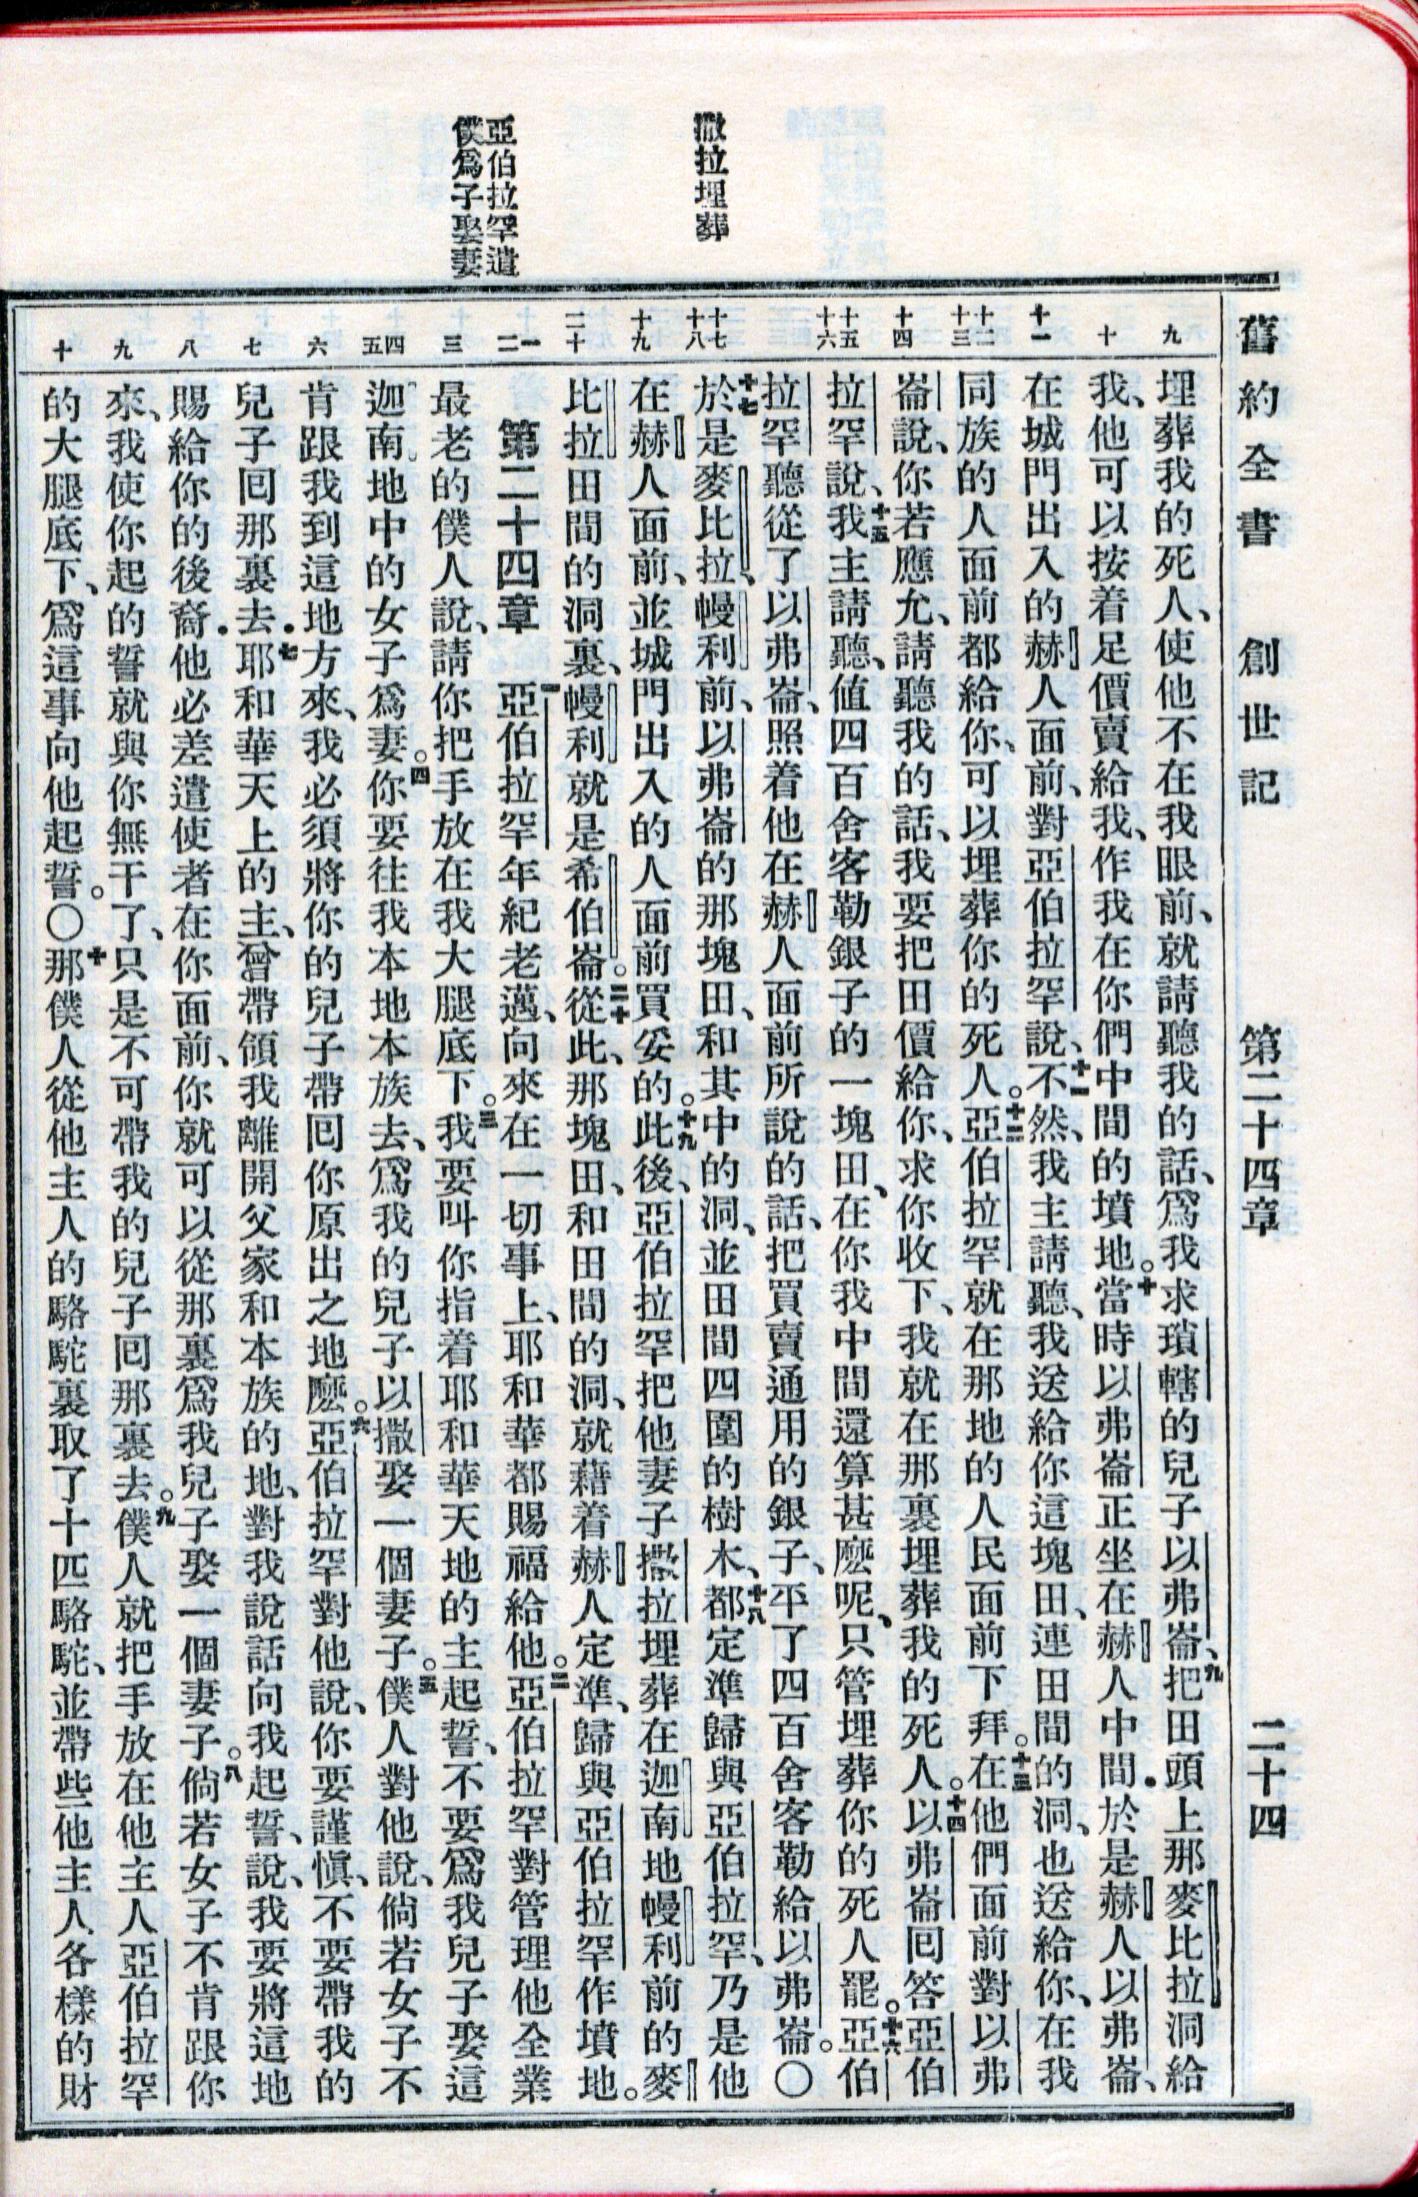 舊約全書 創世記 第二十四章 二十四
撒拉埋葬
亞伯拉罕遣
僕爲子娶妻
九
十
十一
十二
十三
十四
十五
十六
十七
十八
十九
二十
一
二
三
四
五
六
七
八
九
十
埋葬我的死人、使他不在我眼前、就請聽我的話、爲我求瑣轄的兒子以弗崙、九把田頭上那麥比拉洞給
我、他可以按着足價賣給我、作我在你們中間的墳地。十當時以弗崙正坐在赫人中間・於是赫人以弗崙、
在城門出入的赫人面前、對亞伯拉罕說、十一不然、我主請聽、我送給你這塊田、連田間的洞、也送給你、在我
同族的人面前都給你、可以埋葬你的死人。十二亞伯拉罕就在那地的人民面前下拜。十三在他們面前對以弗
崙說、你若應允、請聽我的話、我要把田價給你、求你收下、我就在那裏埋葬我的死人。十四以弗崙回答亞伯
拉罕說、十五我主請聽、値四百舍客勒銀子的一塊田、在你我中間還算甚麽呢、只管埋葬你的死人罷。十六亞伯
拉罕聽從了以弗崙、照着他在赫人面前所說的話、把買賣通用的銀子、平了四百舍客勒給以弗崙。〇
十七於是麥比拉、幔利前、以弗崙的那塊田、和其中的洞、並田間四圍的樹木、十八都定準歸與亞伯拉罕、乃是他
在赫人面前、並城門出入的人面前買妥的。十九此後、亞伯拉罕把他妻子撒拉埋葬在迦南地幔利前的麥
比拉田間的洞裏、幔利就是希伯崙。二十從此、那塊田、和田間的洞、就藉着赫人定準、歸與亞伯拉罕作墳地。
第二十四章 一亞伯拉罕年紀老邁、向來在一切事上、耶和華都賜福給他。二亞伯拉罕對管理他全業
最老的僕人說、請你把手放在我大腿底下。三我要叫你指着耶和華天地的主起誓、不要爲我兒子娶這
迦南地中的女子爲妻。四你要往我本地本族去、爲我的兒子以撒娶一個妻子。五僕人對他說、倘若女子不
肯跟我到這地方來、我必須將你的兒子帶回你原出之地麽。六亞伯拉罕對他說、你要謹愼、不要帶我的
兒子回那裏去・七耶和華天上的主、曾帶領我離開父家和本族的地、對我說話向我起誓、說、我要將這地
賜給你的後裔・他必差遣使者在你面前、你就可以從那裏爲我兒子娶一個妻子。八倘若女子不肯跟你
來、我使你起的誓就與你無干了、只是不可帶我的兒子回那裏去。九僕人就把手放在他主人亞伯拉罕
的大腿底下、爲這事向他起誓。〇十那僕人從他主人的駱駝裏取了十匹駱駝、並帶些他主人各樣的財